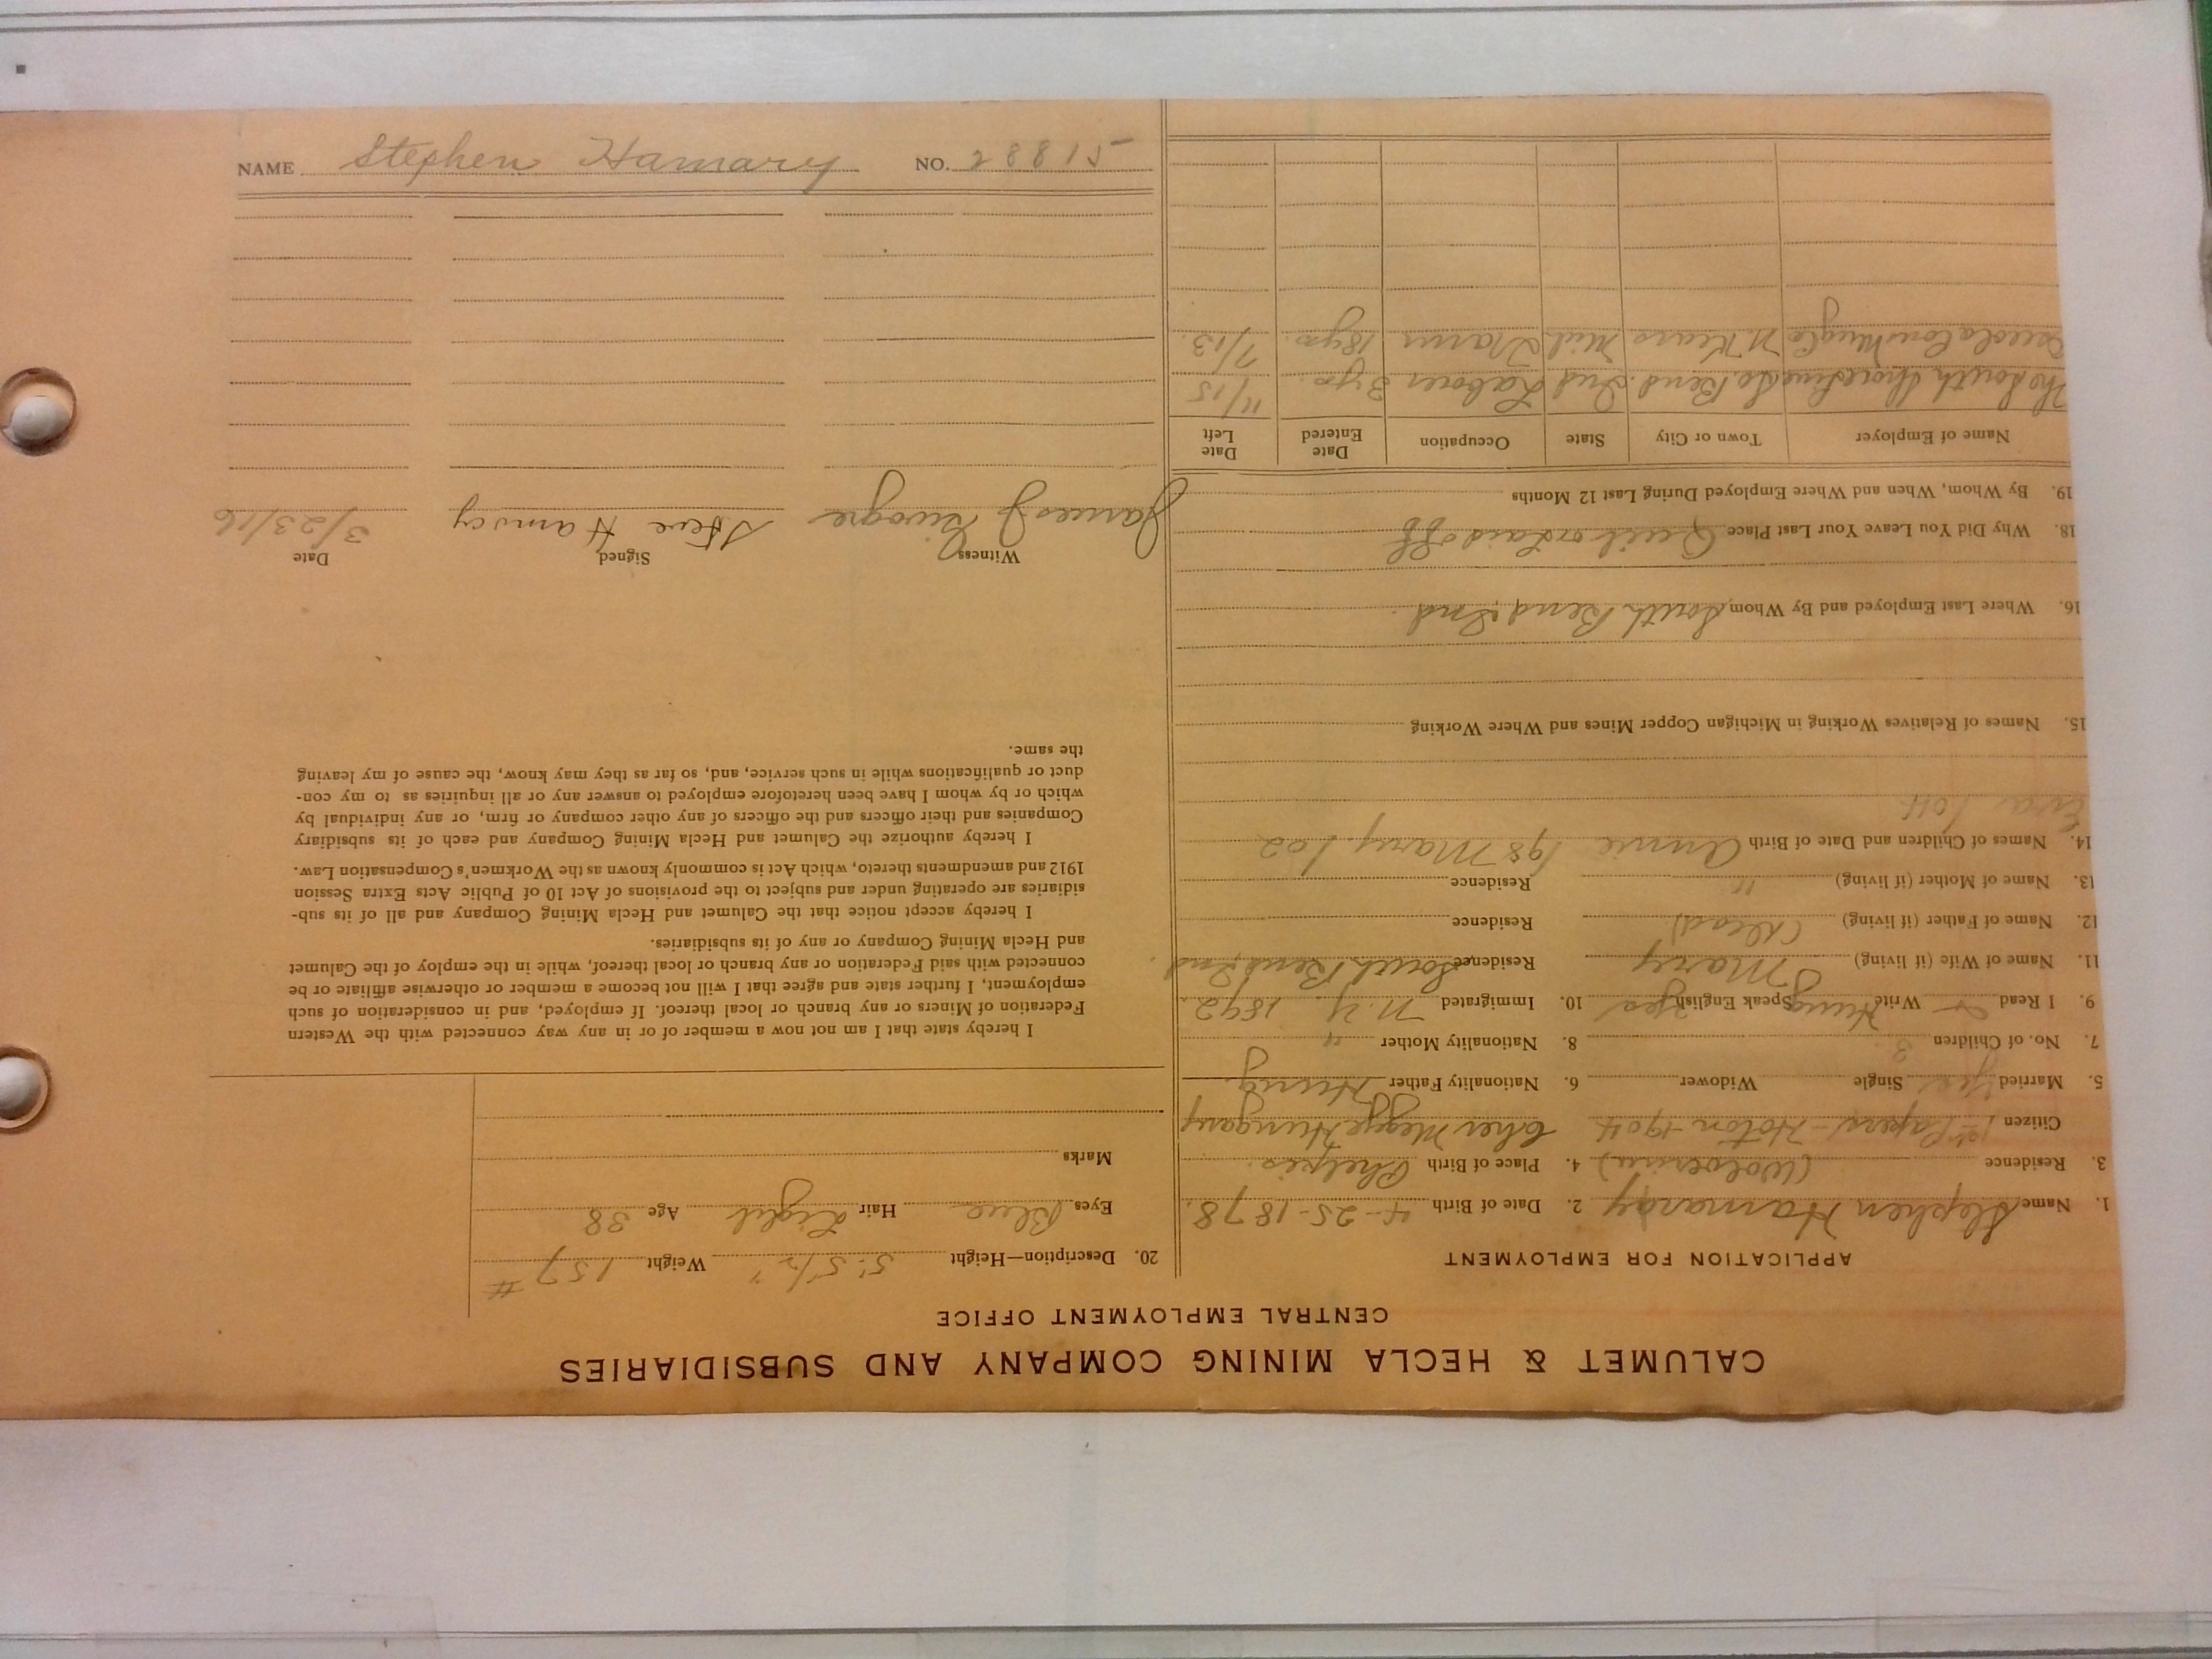 CALUMET & HECLA MINING COMPANY AND SUBSIDIARIES
CENTRAL EMPLOYMENT OFFICE
APPLICATION FOR EMPLOYMENT
1. Name Stephen Hamary 2. Date of Birth 4-25-1878.
3. Residence (Wolverine) 4. Place of Birth
Citizen 1st Papers - Hoton - 1904 Megye Hungary
5. Married Yes Single Widower 6. Nationality Father Hung.
7. No. of Children 3 8. Nationality Mother "
9. I Read Write Hung Speak English Yes 10. Immigrated N.Y. 1892
11. Name of Wife (if living) Mary Residence South Bend, Ind.
12. Name of Father (if living) (Dead) Residence
13. Name of Mother (if living) " Residence
14. Names of Children and Date of Birth Annie /98 Mary /02
Eva /04
15. Names of Relatives Working in Michigan Copper Mines and Where Working
16. Where Last Employed and By Whom South Bend, Ind.
18. Why Did You Leave Your Last Place Laid off
19. By Whom, When and Where Employed During Last 12 Months
Name of Employer Town or City State Occupation Date Entered Date Left
The South So. Bend. Ind Laborer 3 yrs. 11/15
Osceola Con N. Kears Mich 18 yrs. 7/13.
20. Description—Height 5' 5 1/2" Weight 157 #
Eyes Blue Hair Light Age 38
Marks
I hereby state that I am not now a member of or in any way connected with the Western
Federation of Miners or any branch or local thereof. If employed, and in consideration of such
employment, I further state and agree that I will not become a member or otherwise affiliate or be
connected with said Federation or any branch or local thereof, while in the employ of the Calumet
and Hecla Mining Company or any of its subsidiaries.
I hereby accept notice that the Calumet and Hecla Mining Company and all of its sub-
sidiaries are operating under and subject to the provisions of Act 10 of Public Acts Extra Session
1912 and amendments thereto, which Act is commonly known as the Workmen's Compensation Law.
I hereby authorize the Calumet and Hecla Mining Company and each of its subsidiary
Companies and their officers and the officers of any other company or firm, or any individual by
which or by whom I have been heretofore employed to answer any or all inquiries as to my con-
duct or qualifications while in such service, and, so far as they may know, the cause of my leaving
the same.
Witness Signed Date
James J Steve Hamary 3/23/16
NAME Stephen Hamary NO. 28815